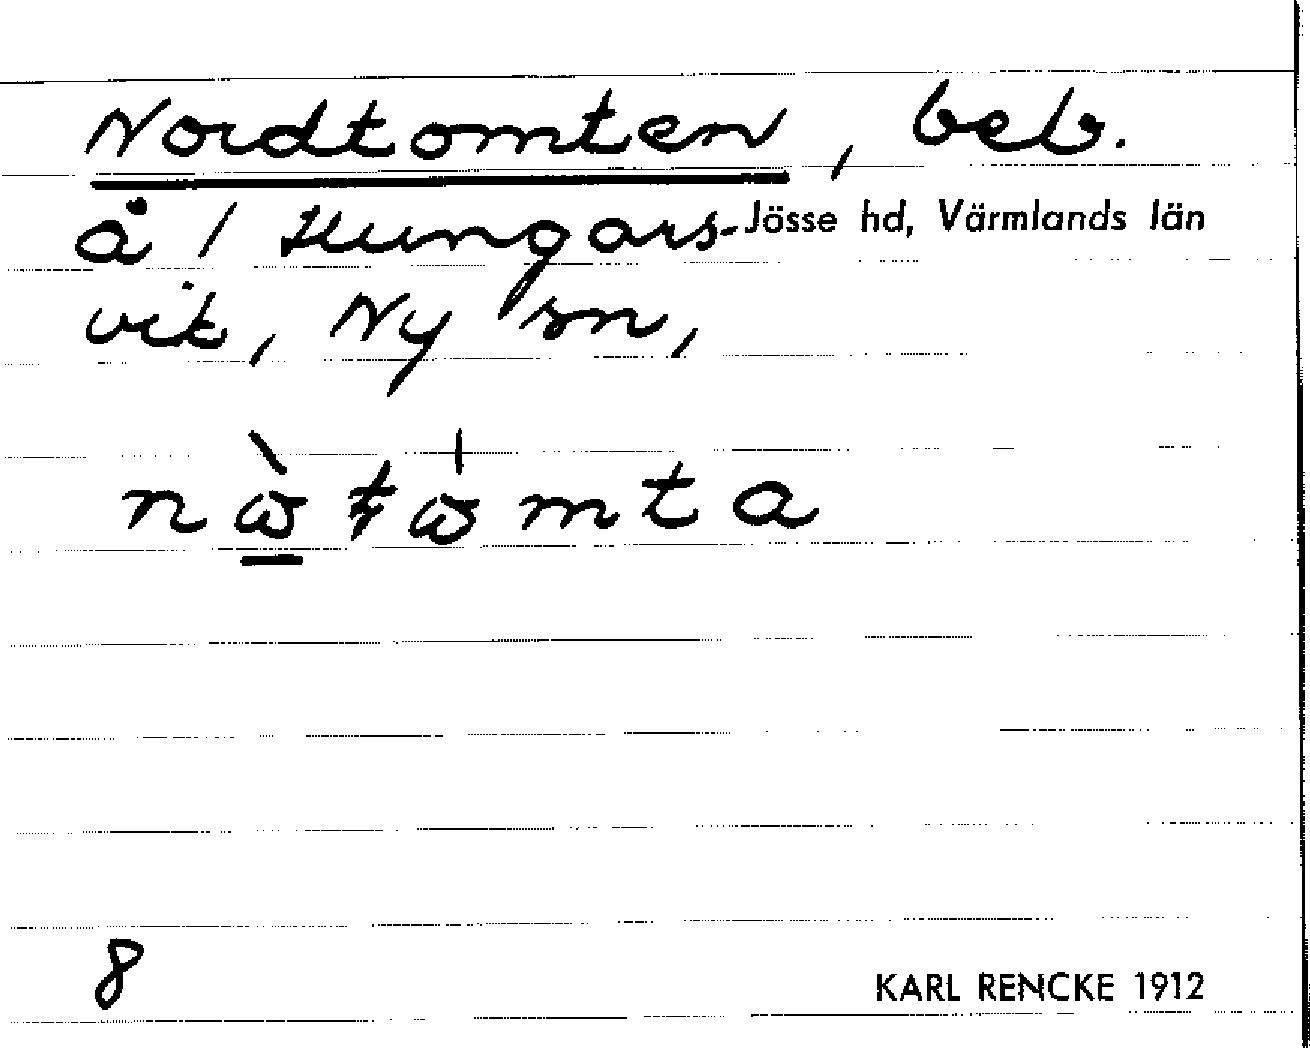 Nordtomten, beb.
å / Hungars- Jösse hd, Värmlands län
vik, Ny sn,
8
KARL RENCKE 1912